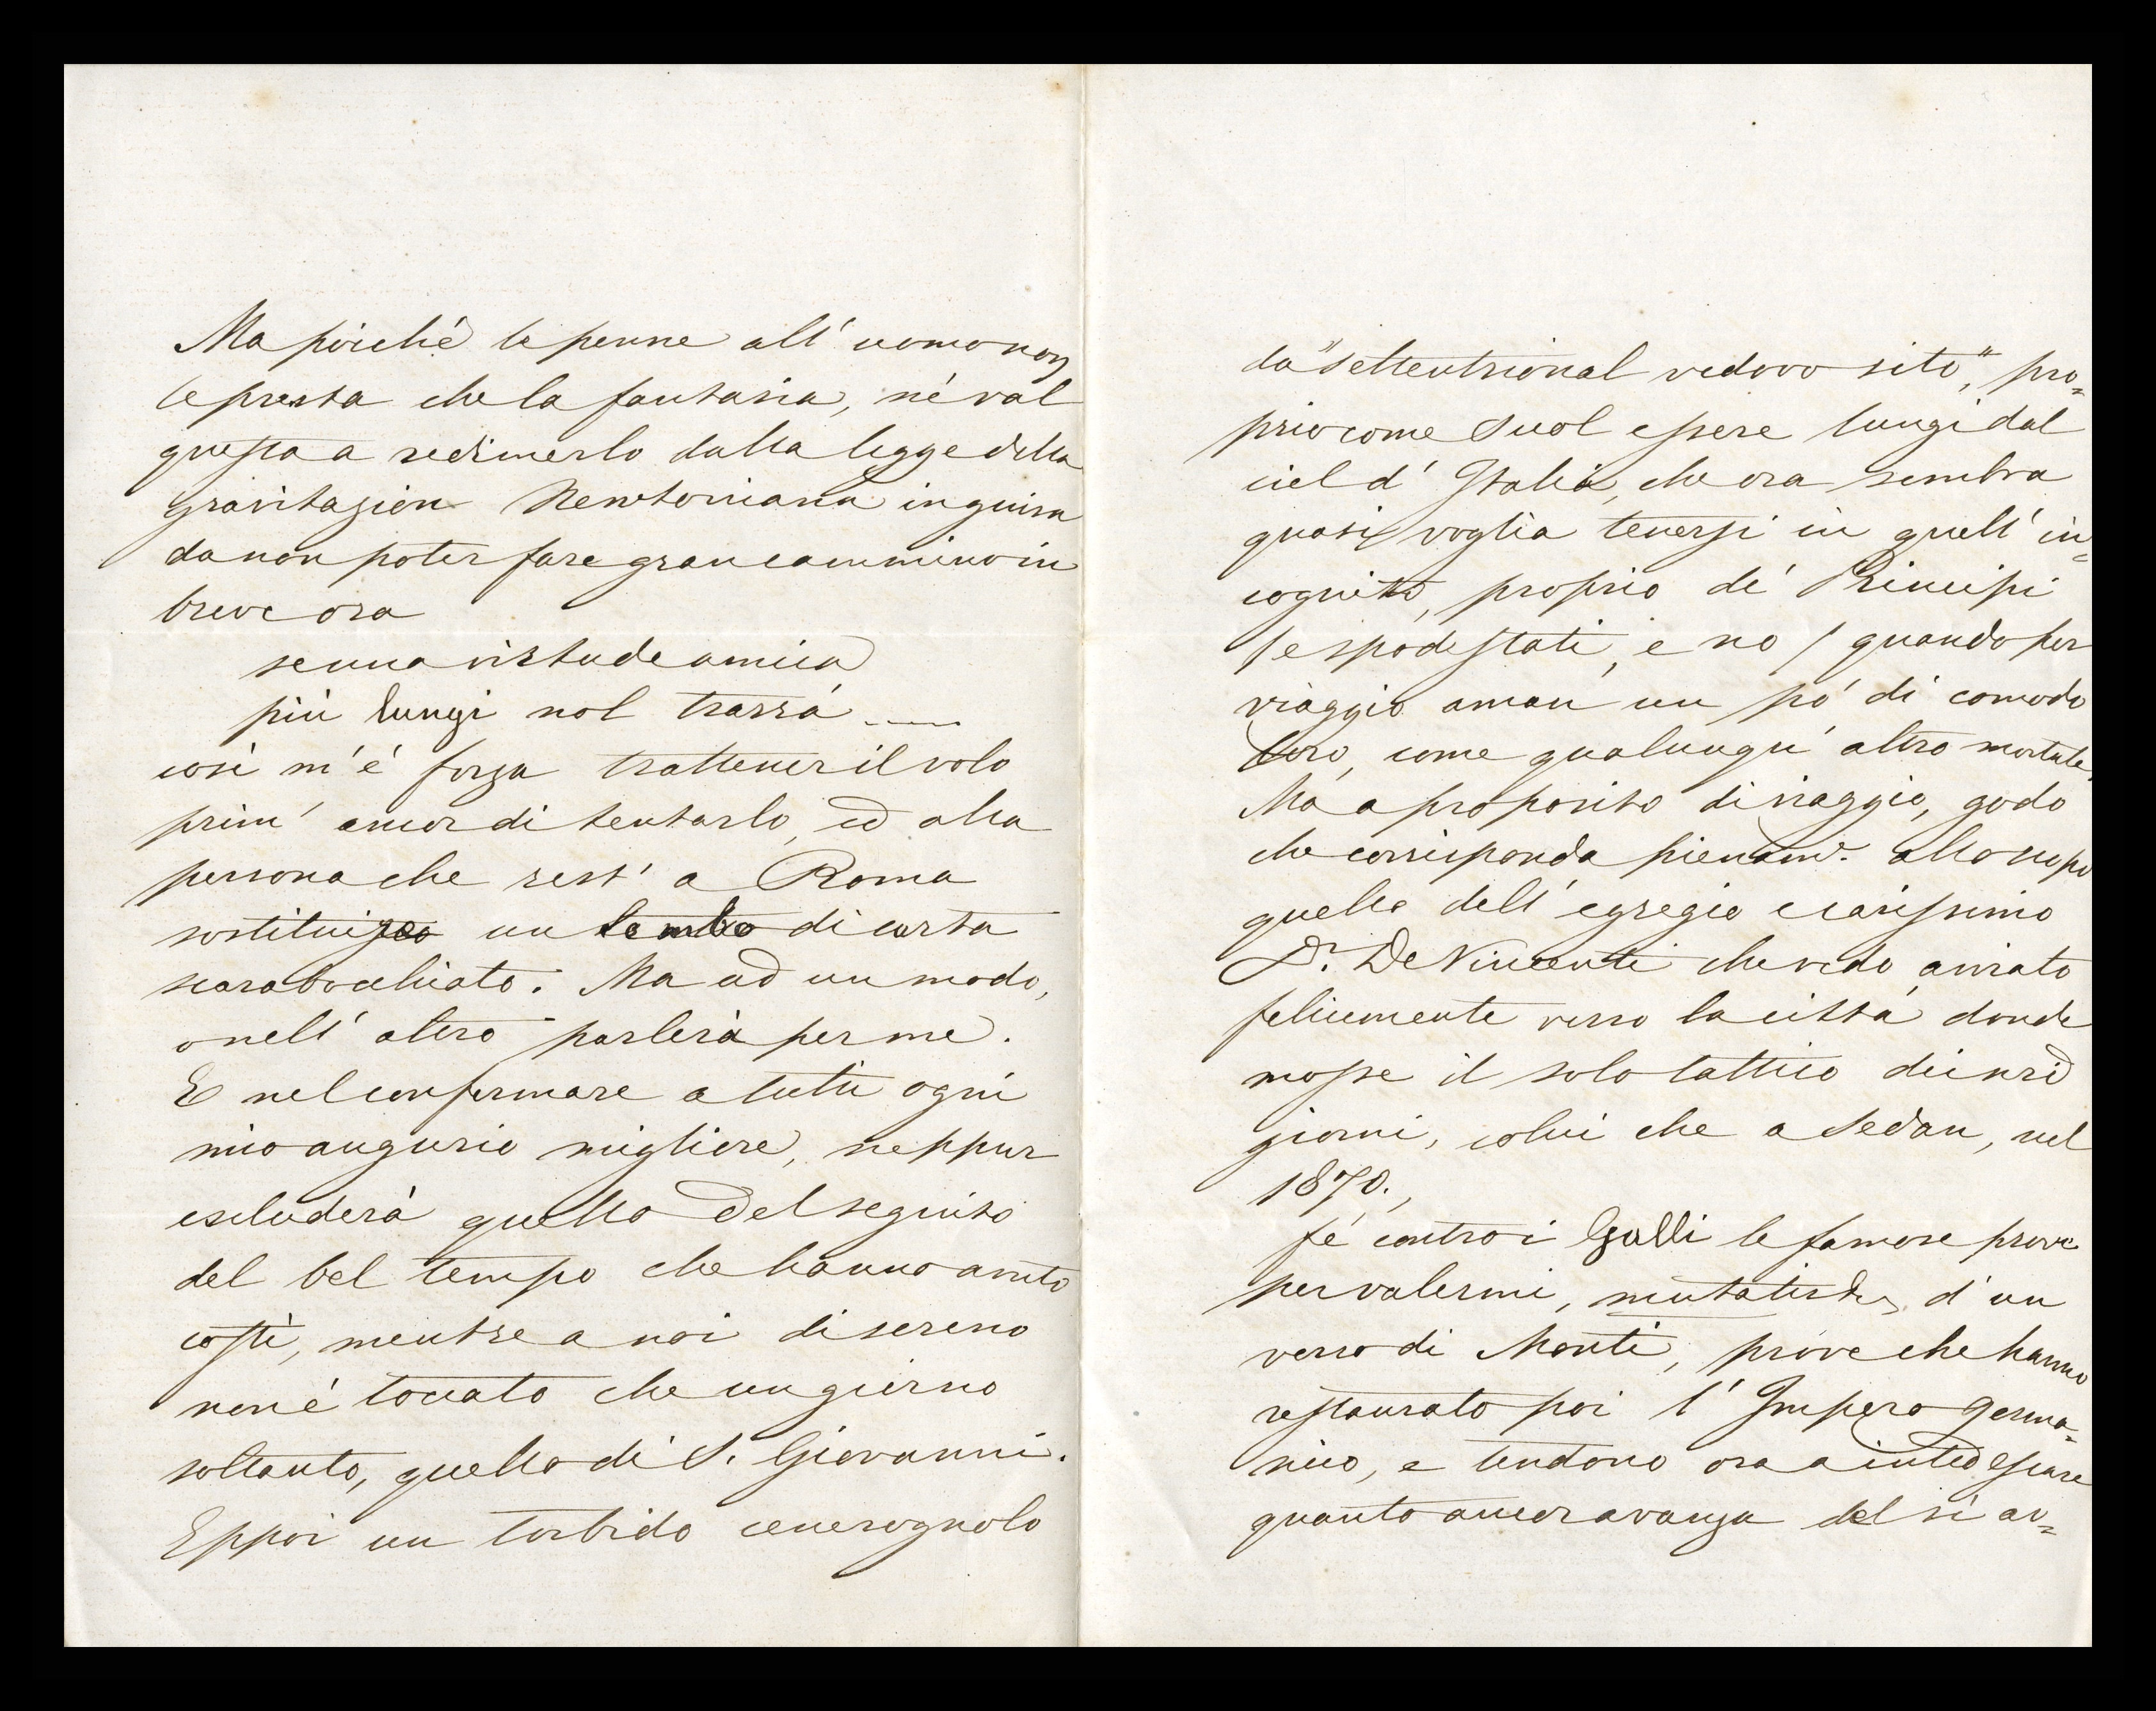 Ma poiché le penne all' uomo non
le presta che la fantasia, né val
questa a redimerlo dalla legge della
gravitazion Newtoniana in guisa
da non poter fare gran cammino in
breve ora
se una virtude amica
più lungi nol trarrá ....
così m' é forza trattener il volo
prim' ancor di tentarlo, ed alla
persona che rest' a Roma
sostituisco un lembo di carta
scarabocchiato. Ma ad un modo,
o nell' altro parlerà per me.
E nel confermare a tutti ogni
mio augurio migliore, neppur
escluderà quello del seguito
del bel tempo che hanno avuto
costì, mentre a noi di sereno
non é toccato che un giorno
soltanto, quello di S. Giovanni.
Eppoi un torbido cenerognolo
da "settentrional vedovo sito", pro=
prio come suol essere lungi dal
ciel d' Italia, che ora sembra
quasi voglia tenersi in quell' in=
cognito, proprio de' Principi
/e spodestati, e no / quando per
viaggio aman' un pó di comodo
loro, come qualunqu' altro mortale.
Ma a proposito di viaggio, godo
che corrisponda pienam.e allo scopo
quello dell' egregio e carissimo
Dr. De Vincenti che vedo avviato
felicemente verso la città donde
mosse il solo tattico dei nri
giorni, colui che a Sedan, nel
1870.,
fé contro i Galli le famose prove
per valermi, mutatis dis, d' un
verso di Monti, prove che hanno
restaurato poi l' Impero germa=
nico, e tendono ora a intedescare
quanto ancor avanza del sì av=